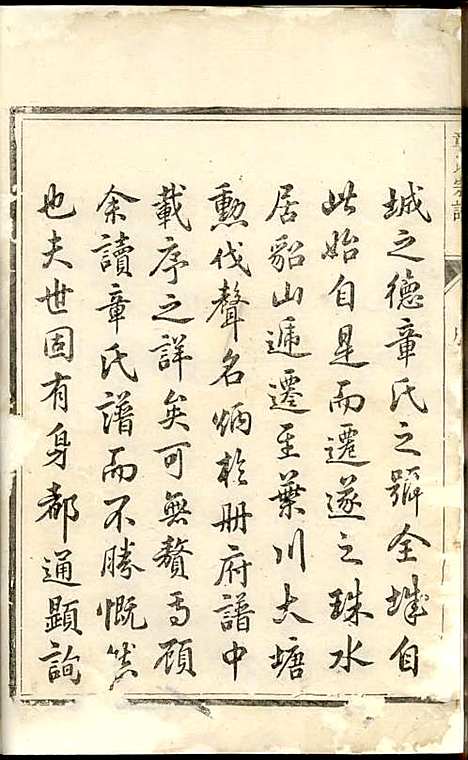 章氏宗譜
城之德章氏之號全城自
此始自是而遷遂之珠水
居貂山遞遷至葉川大塘
勳伐聲名炳於冊府譜中
載序之詳矣可無贅焉顧
余讀章氏譜而不勝慨然
也夫世固有身都通顯詢